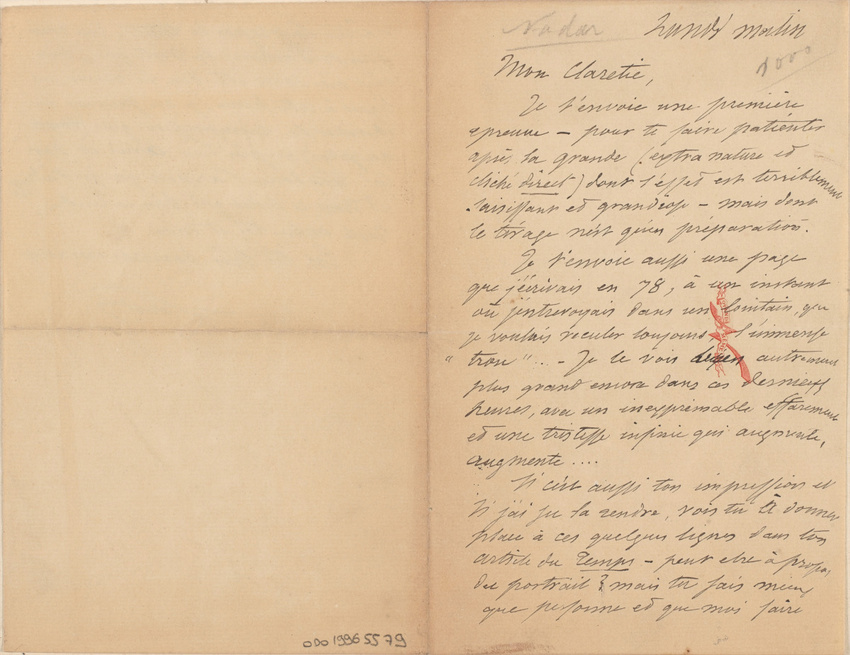 Nadar
Lundi matin
1000
Mon Claretie,
Je t'envoie une première
epreuve — pour te faire patienter
après la grande (extra nature et
cliché direct) dont l'effet est terriblement
saisissant et grandiose — mais dont
le tirage n'est qu'en préparation.
Je t'envoie aussi une page
que j'écrivais en 78, à un instant
où j'entrevoyais dans un lointain, que
je voulais reculer toujours l'immense
"trou"... — Je le vois autrement
plus grand encore dans ces dernières
heures, avec un inexprimable effarement
et une tristesse infinie qui augmente,
augmente....
Si c'est aussi ton impression et
si j'ai su la rendre, vois tu à donner
place à ces quelques lignes dans ton
article du Temps — peut etre à propos
du portrait? mais tu sais mieux
que personne et que moi faire
ODO 1996 55 79